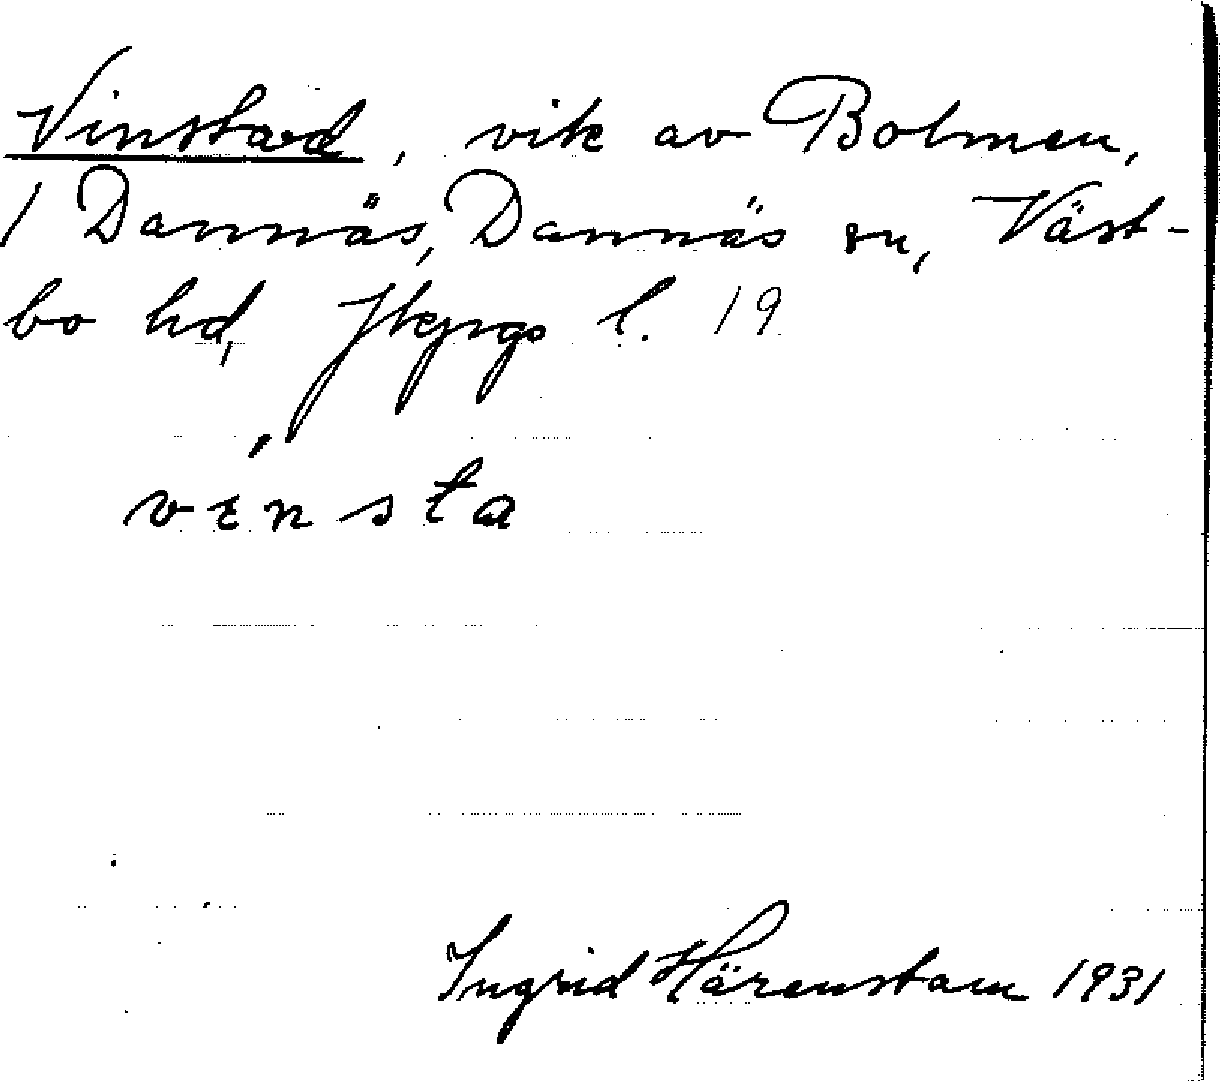 Vinstad, vik av Bolmen,
1 Dannäs, Dannäs sn, Väst-
bo hd, Jkpgs l. 19
vɛnsta
Ingrid Härenstam 1931